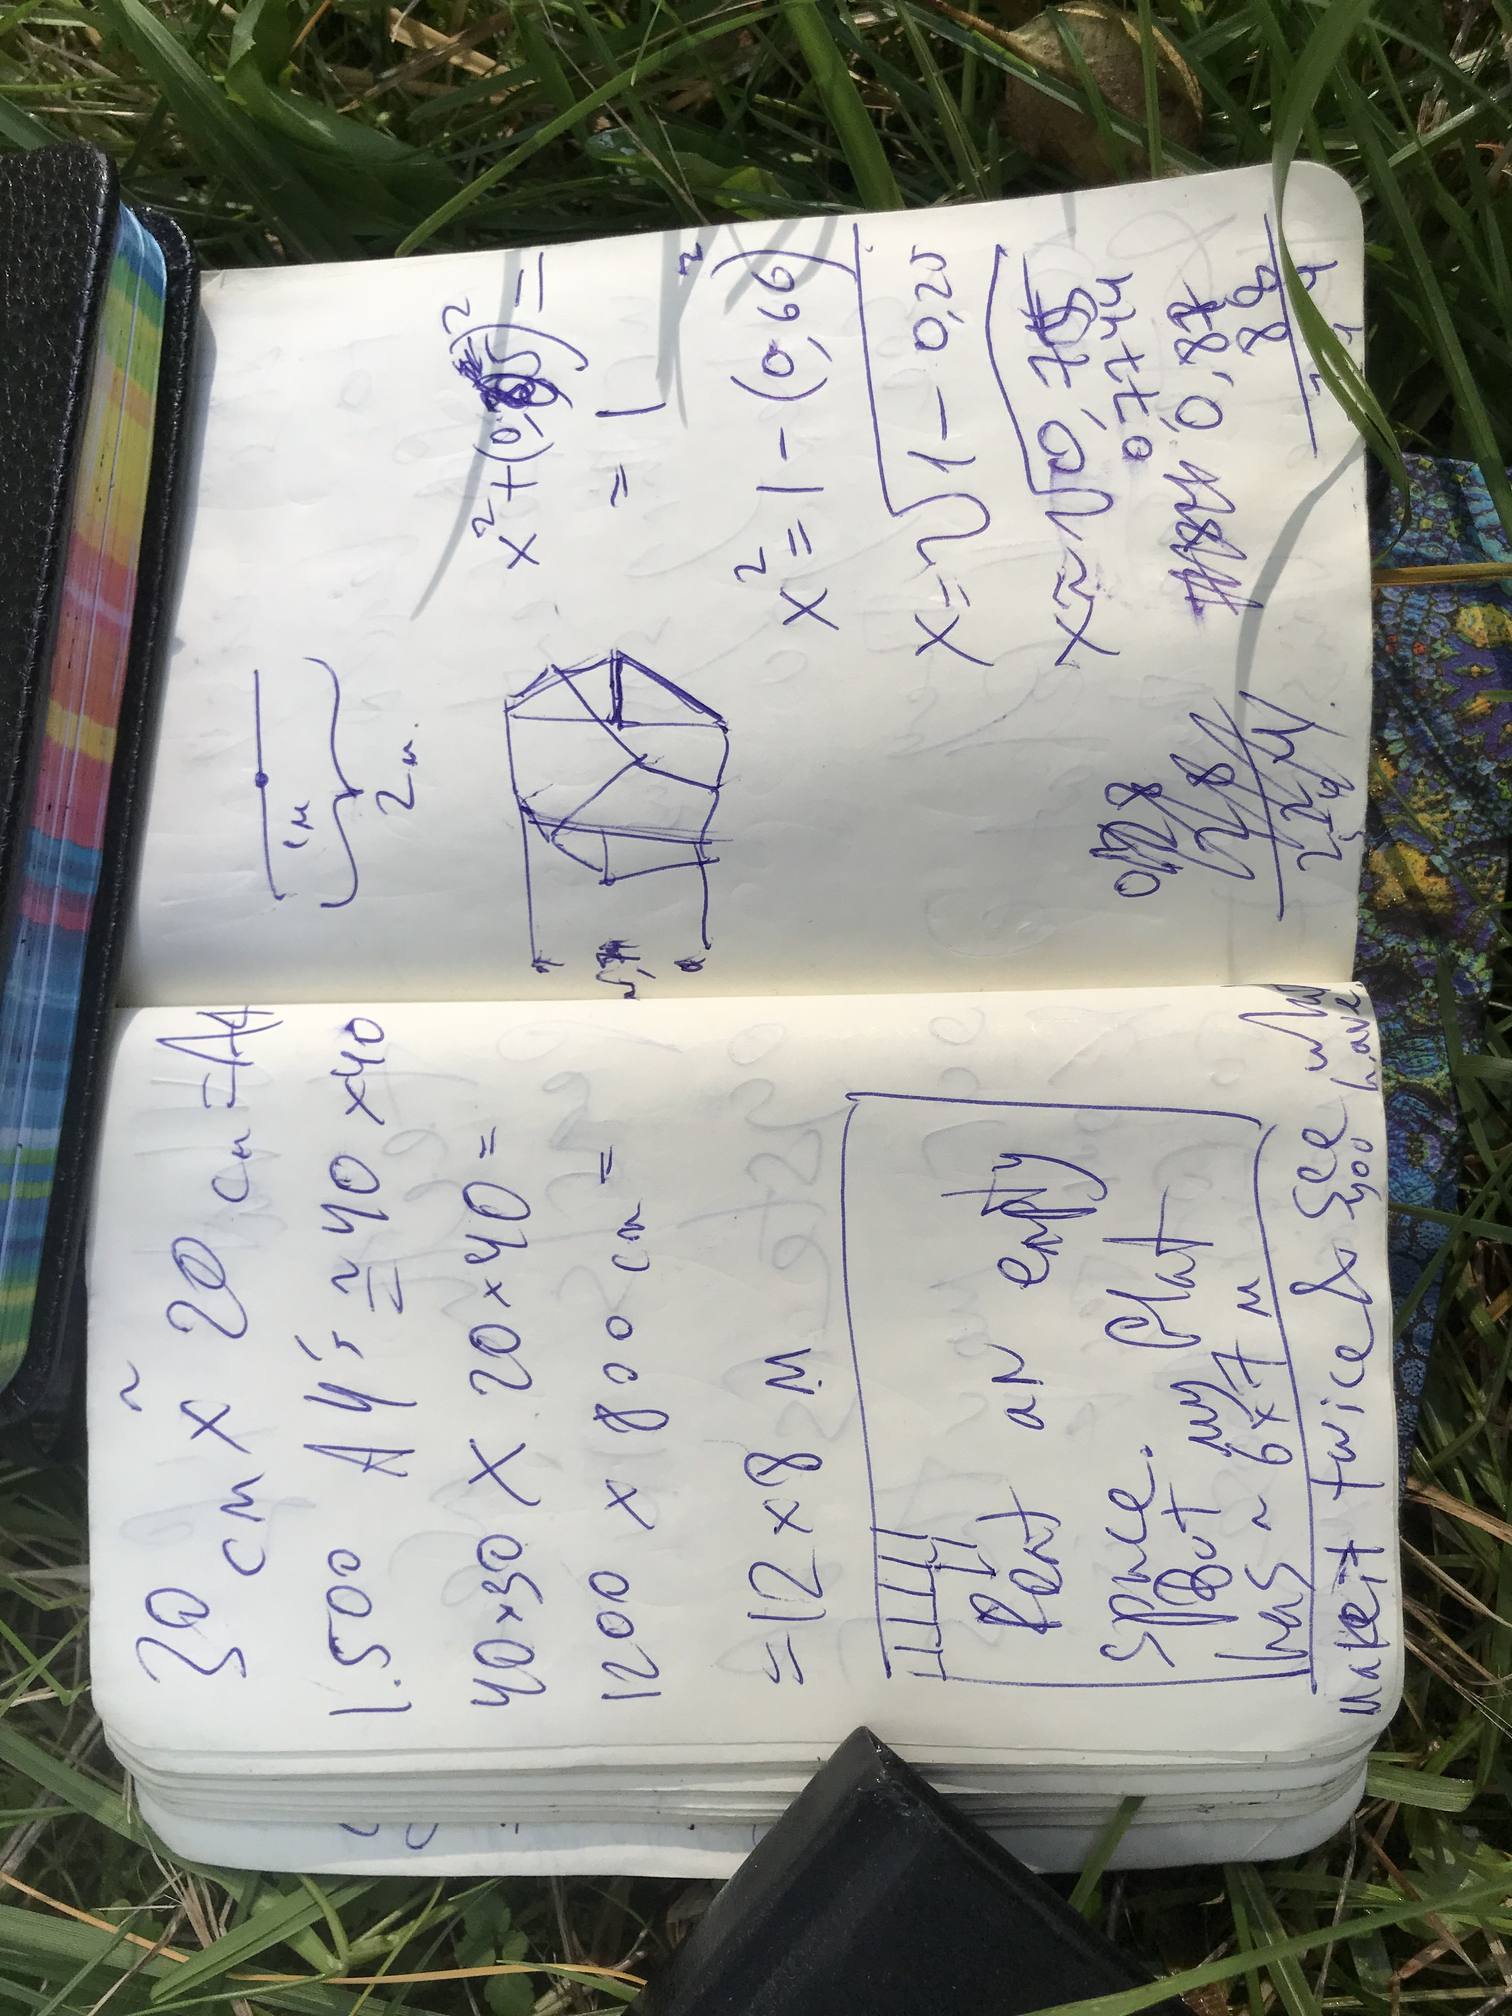 30 cm x ~ 20 cm = A4
1.500 A4's ≅ 40 x 40
40 x 30 X 20 x 40 =
1200 x 800 cm =
= 12 x 8 м
Rent an empty
space.
But my flat
has ~ 6 x 7 м
Make it twice & see
you have
1м
2м.
x² + (0, 5)² =
= 1
x² = 1 - (0,66)²
x = √1 - 0,25
x ≈ √0,75
0,7744
0,87
88
88